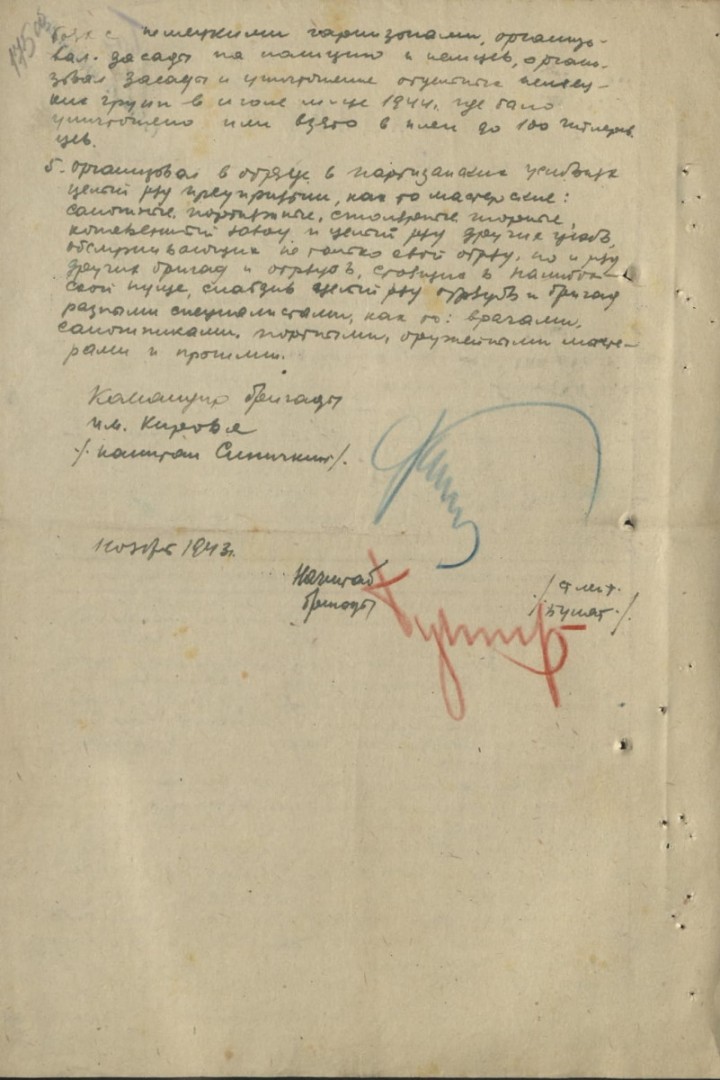 175 об.
с немецкими гарнизонами, организо-
вал засады на полицию и немцев, органи-
зовал засады и уничтожение отдельных немец-
ких групп в июле м-це 1944, где было
уничтожено или взято в плен до 100 гитлеров
цев.
5. организовал в отряде в партизанских условиях
целый ряд предприятий, как то мастерские:
сапожные, портняжные, столярные
кожевенный завод и целый ряд других
обслуживающих не только свой отряд, но и ряд
других бригад и отрядов, стоящих в Налибок-
ской пуще, снабдив целый ряд отрядов и бригад
разными специалистами, как то: врачами,
сапожниками, портными, оружейными масте-
рами и прочими.
Командир бригады
им. Кирова
/. капитан Синичкин /.
1943 г.
Начштаб
бригады
/ ст. лейт.
/